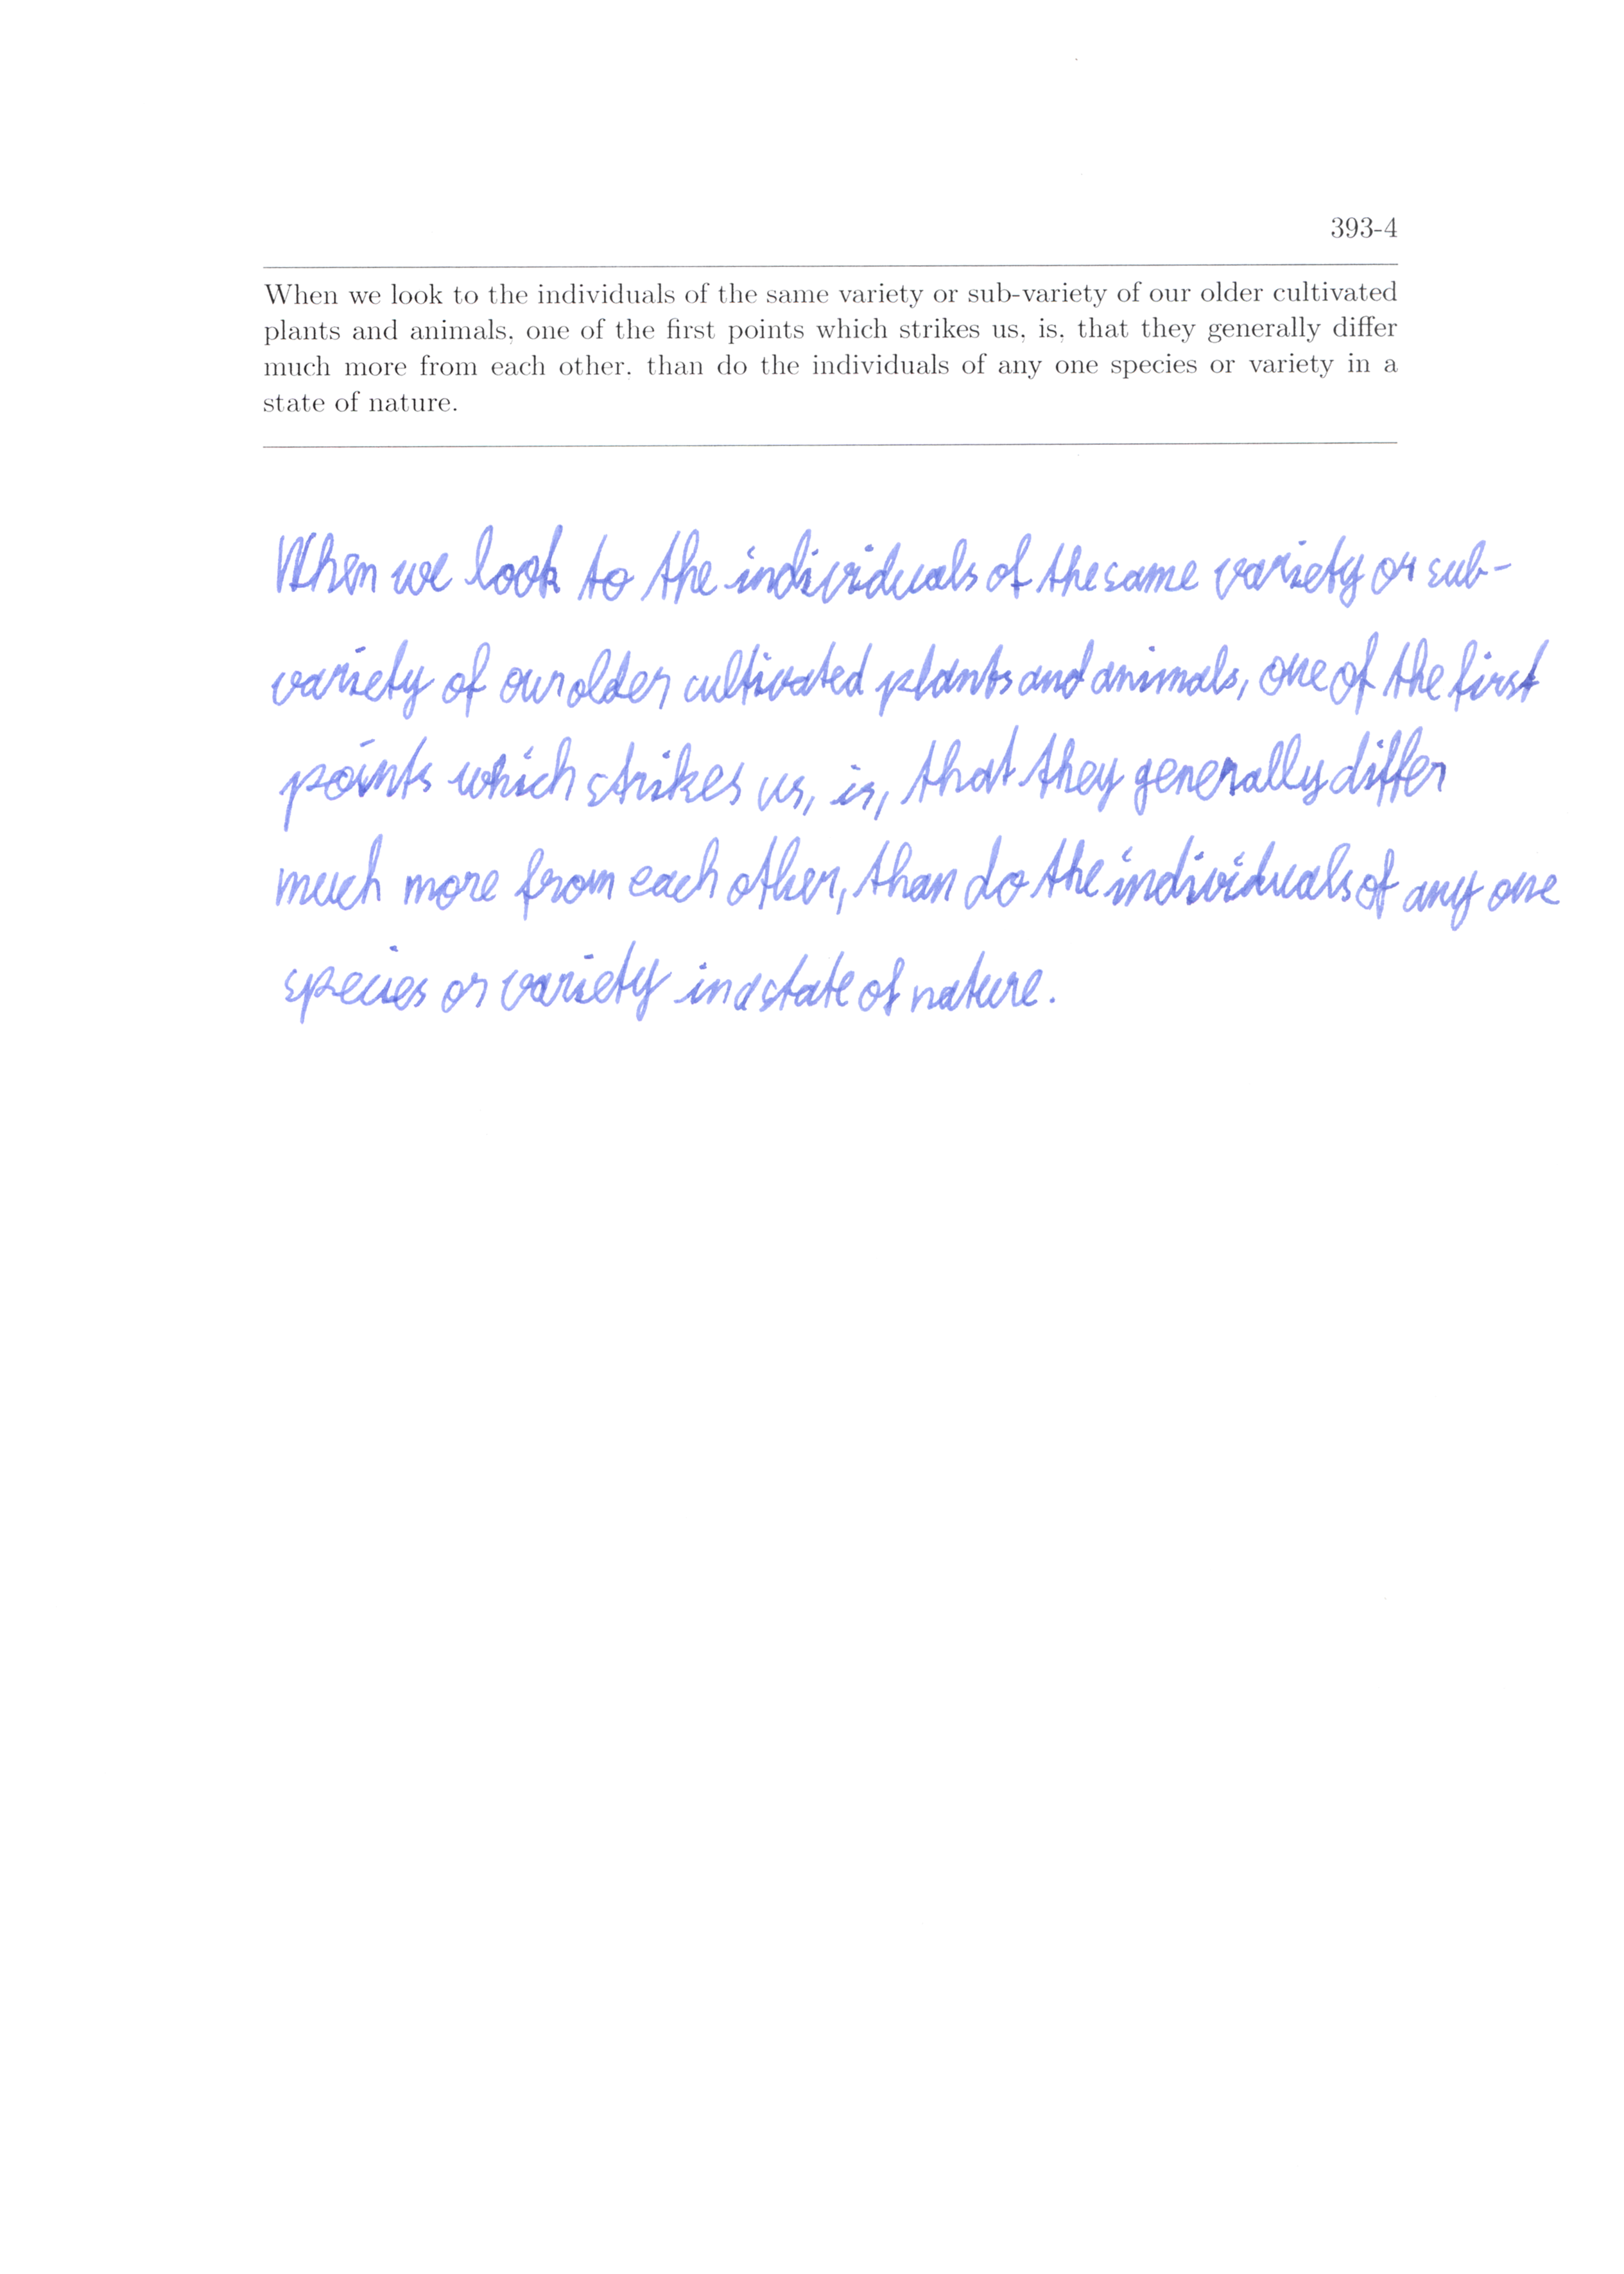 393-4
When we look to the individuals of the same variety or sub-variety of our older cultivated
plants and animals, one of the first points which strikes us, is, that they generally differ
much more from each other, than do the individuals of any one species or variety in a
state of nature.
When we look to the individuals of the same variety or sub-
variety of our older cultivated plants and animals, one of the first
points which strikes us, is, that they generally differ
much more from each other, than do the individuals of any one
species or variety in a state of nature.